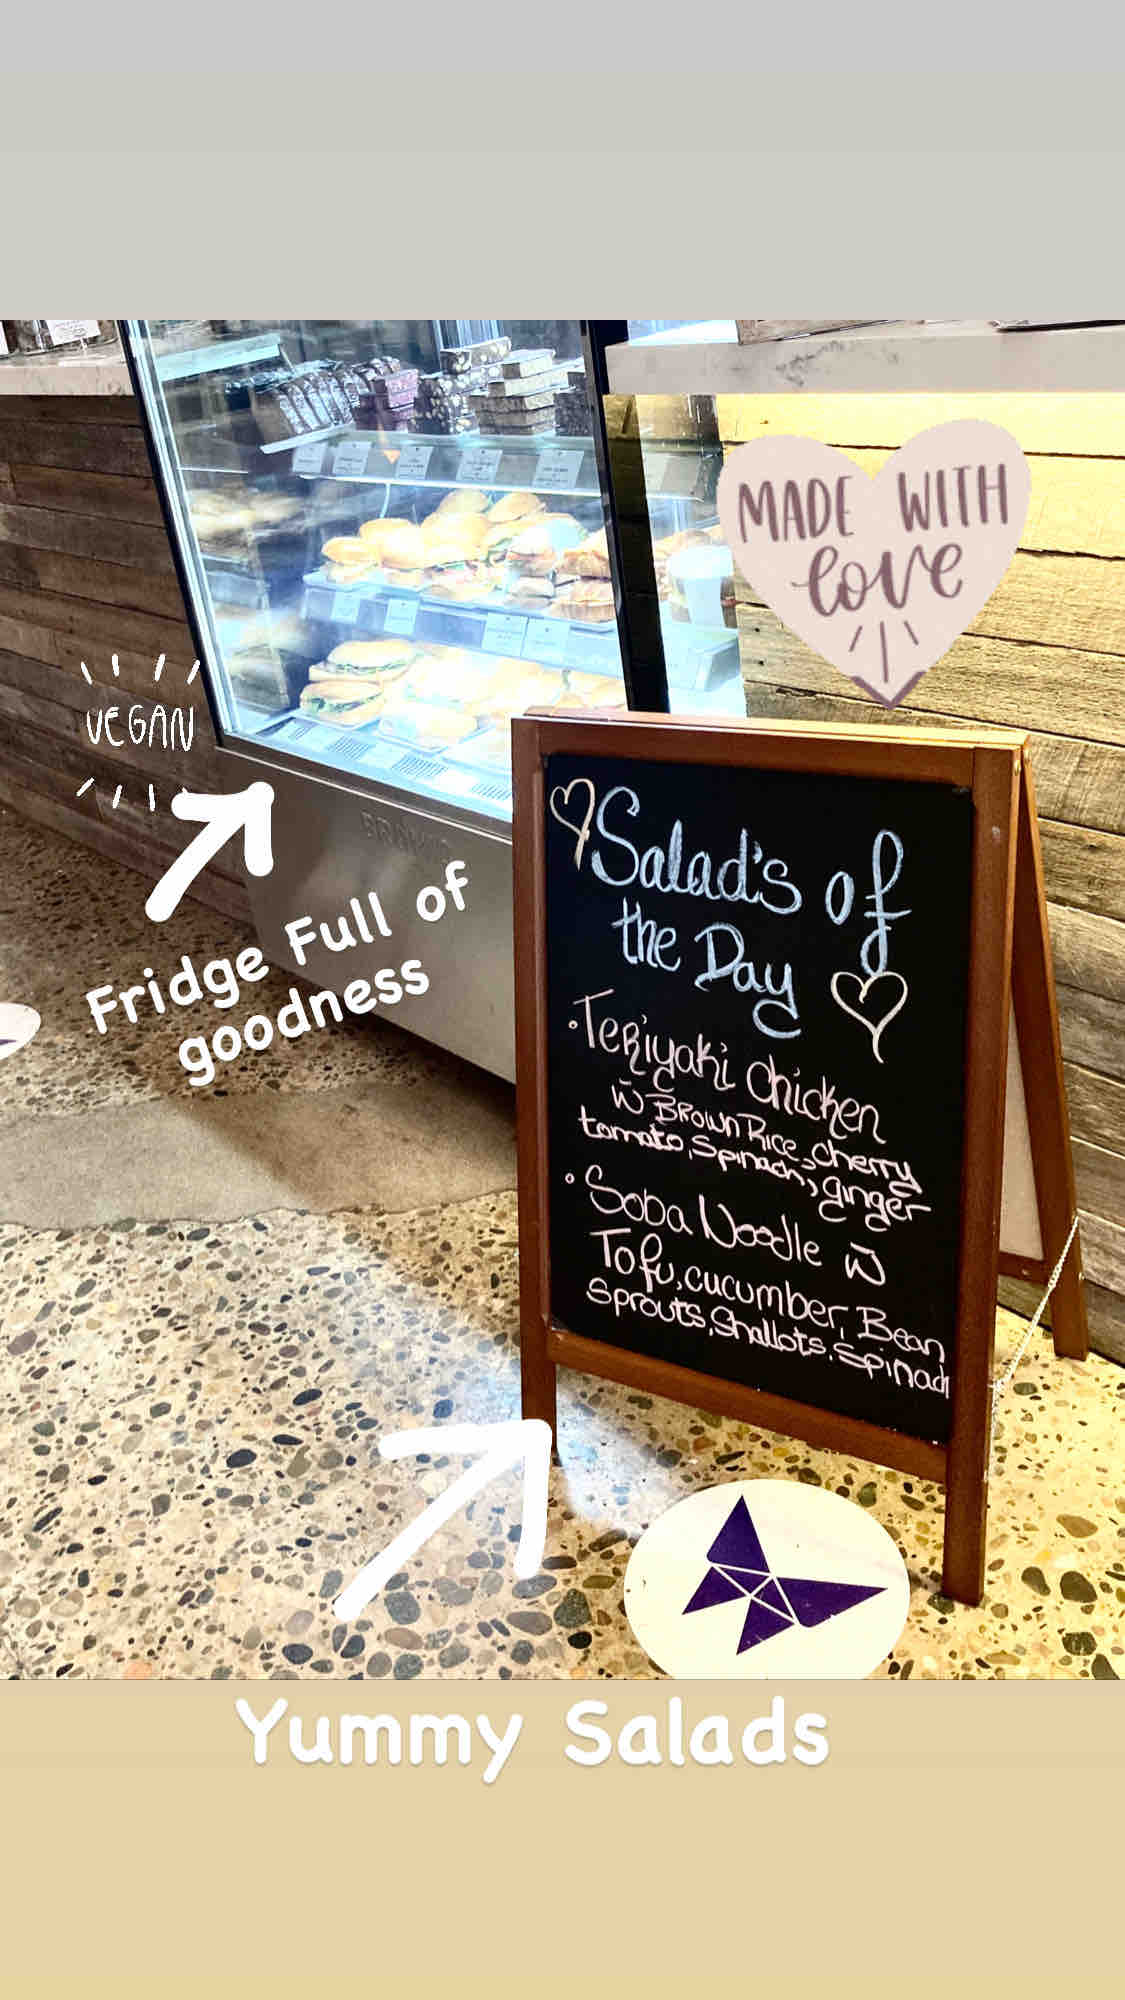 MADE WITH
love
VEGAN
Fridge Full of
goodness
Salad's of
the Day
Teriyaki Chicken
w̄ Brown Rice, cherry
tomato, Spinach, ginger
Soba Noodle w̄
Tofu, cucumber, Bean
Sprouts, Shallots, Spinach
Yummy Salads